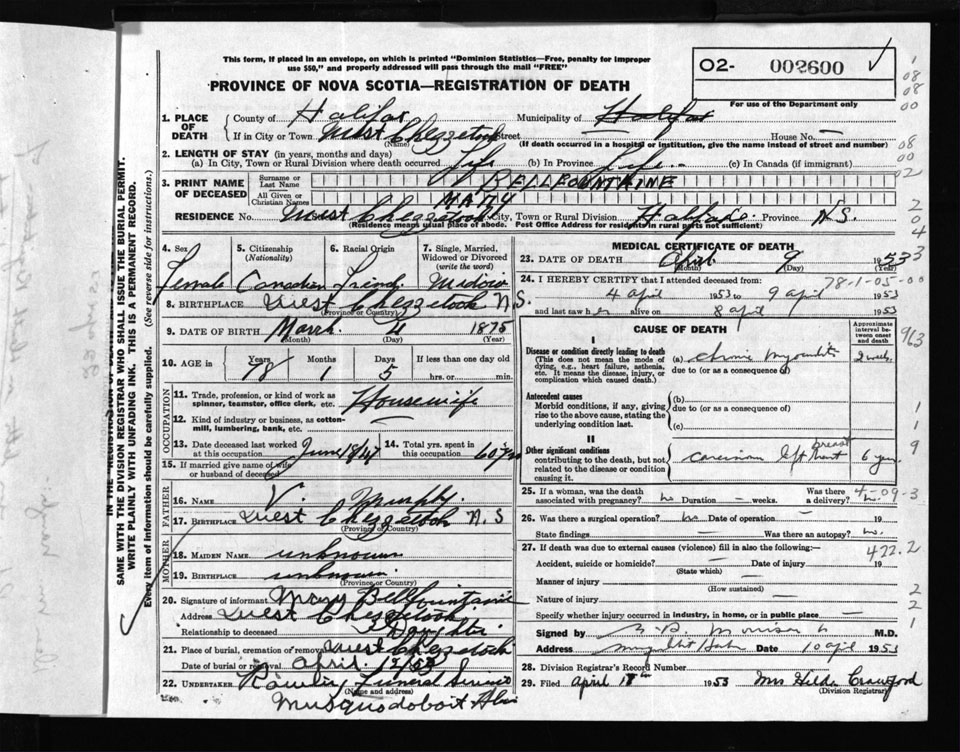 This form, if placed in an envelope, on which is printed "Dominion Statistics—Free, penalty for improper
use $50," and properly addressed will pass through the mail "FREE"
PROVINCE OF NOVA SCOTIA—REGISTRATION OF DEATH
O2- 002600
For use of the Department only
1. PLACE OF DEATH County of Halifax Municipality of Halifax
If in City or Town West Chezzetcook Street House No. —
(Name) (If death occurred in a hospital or institution, give the name instead of street and number)
2. LENGTH OF STAY (in years, months and days)
(a) In City, Town or Rural Division where death occurred Life (b) In Province Life (c) In Canada (if immigrant)
3. PRINT NAME OF DECEASED
Surname or Last Name BELLFOUNTAINE
All Given or Christian Names MARY
RESIDENCE No. West Chezzetcook City, Town or Rural Division Halifax Province N.S.
(Residence means usual place of abode. Post Office Address for residents in rural parts not sufficient)
4. Sex Female
5. Citizenship (Nationality) Canadian
6. Racial Origin
7. Single, Married, Widowed or Divorced (write the word) Widow
8. BIRTHPLACE West Chezzetcook N.S.
(Province or Country)
9. DATE OF BIRTH March 4 1875
(Month) (Day) (Year)
10. AGE in Years 78 Months 1 Days 5 If less than one day old
hrs. or min.
OCCUPATION
11. Trade, profession, or kind of work as spinner, teamster, office clerk, etc. Housewife
12. Kind of industry or business, as cotton-mill, lumbering, bank, etc. —
13. Date deceased last worked at this occupation June 18/47 14. Total yrs. spent in this occupation 60 yrs
15. If married give name of wife or husband of deceased
FATHER
16. NAME V. Murphy
17. BIRTHPLACE West Chezzetcook N.S
(Province or Country)
MOTHER
18. MAIDEN NAME unknown
19. BIRTHPLACE unknown
(Province or Country)
20. Signature of informant Mary Bellfountaine
Address West Chezzetcook
Relationship to deceased Daughter
21. Place of burial, cremation or removal West Chezzetcook
Date of burial or removal April 12/53
22. UNDERTAKER Funeral Service
(Name and address)
Musquodoboit Hbr
MEDICAL CERTIFICATE OF DEATH
23. DATE OF DEATH April 9 1953
(Month) (Day) (Year)
24. I HEREBY CERTIFY that I attended deceased from:
78-1-05-00
4 April 1953 to 9 April 1953
and last saw her alive on 8 April 1953
CAUSE OF DEATH
Approximate interval between onset and death
I
Disease or condition directly leading to death
(This does not mean the mode of dying, e.g., heart failure, asthenia, etc. It means the disease, injury, or complication which caused death.)
(a) chronic myocarditis 2 weeks
due to (or as consequence of)
Antecedent causes
Morbid conditions, if any, giving rise to the above cause, stating the underlying condition last.
(b)
due to (or as a consequence of)
(c)
II
Other significant conditions
contributing to the death, but not related to the disease or condition causing it.
carcinoma left breast 6 years
25. If a woman, was the death associated with pregnancy? no Duration — weeks. Was there a delivery? no
4-09-3
26. Was there a surgical operation? no Date of operation — 19
State findings — Was there an autopsy? no.
27. If death was due to external causes (violence) fill in also the following:—
422.2
Accident, suicide or homicide? — Date of injury — 19
(State which)
Manner of injury —
(How sustained)
Nature of injury —
Specify whether injury occurred in industry, in home, or in public place —
Signed by M.D.
Address Date 10 April 1953
28. Division Registrar's Record Number
29. Filed April 18th 1953 Mrs Hilda Crawford
(Division Registrar)
SAME WITH THE DIVISION REGISTRAR WHO SHALL ISSUE THE BURIAL PERMIT.
WRITE PLAINLY WITH UNFADING INK. THIS IS A PERMANENT RECORD.
Every item of information should be carefully supplied. (See reverse side for instructions.)